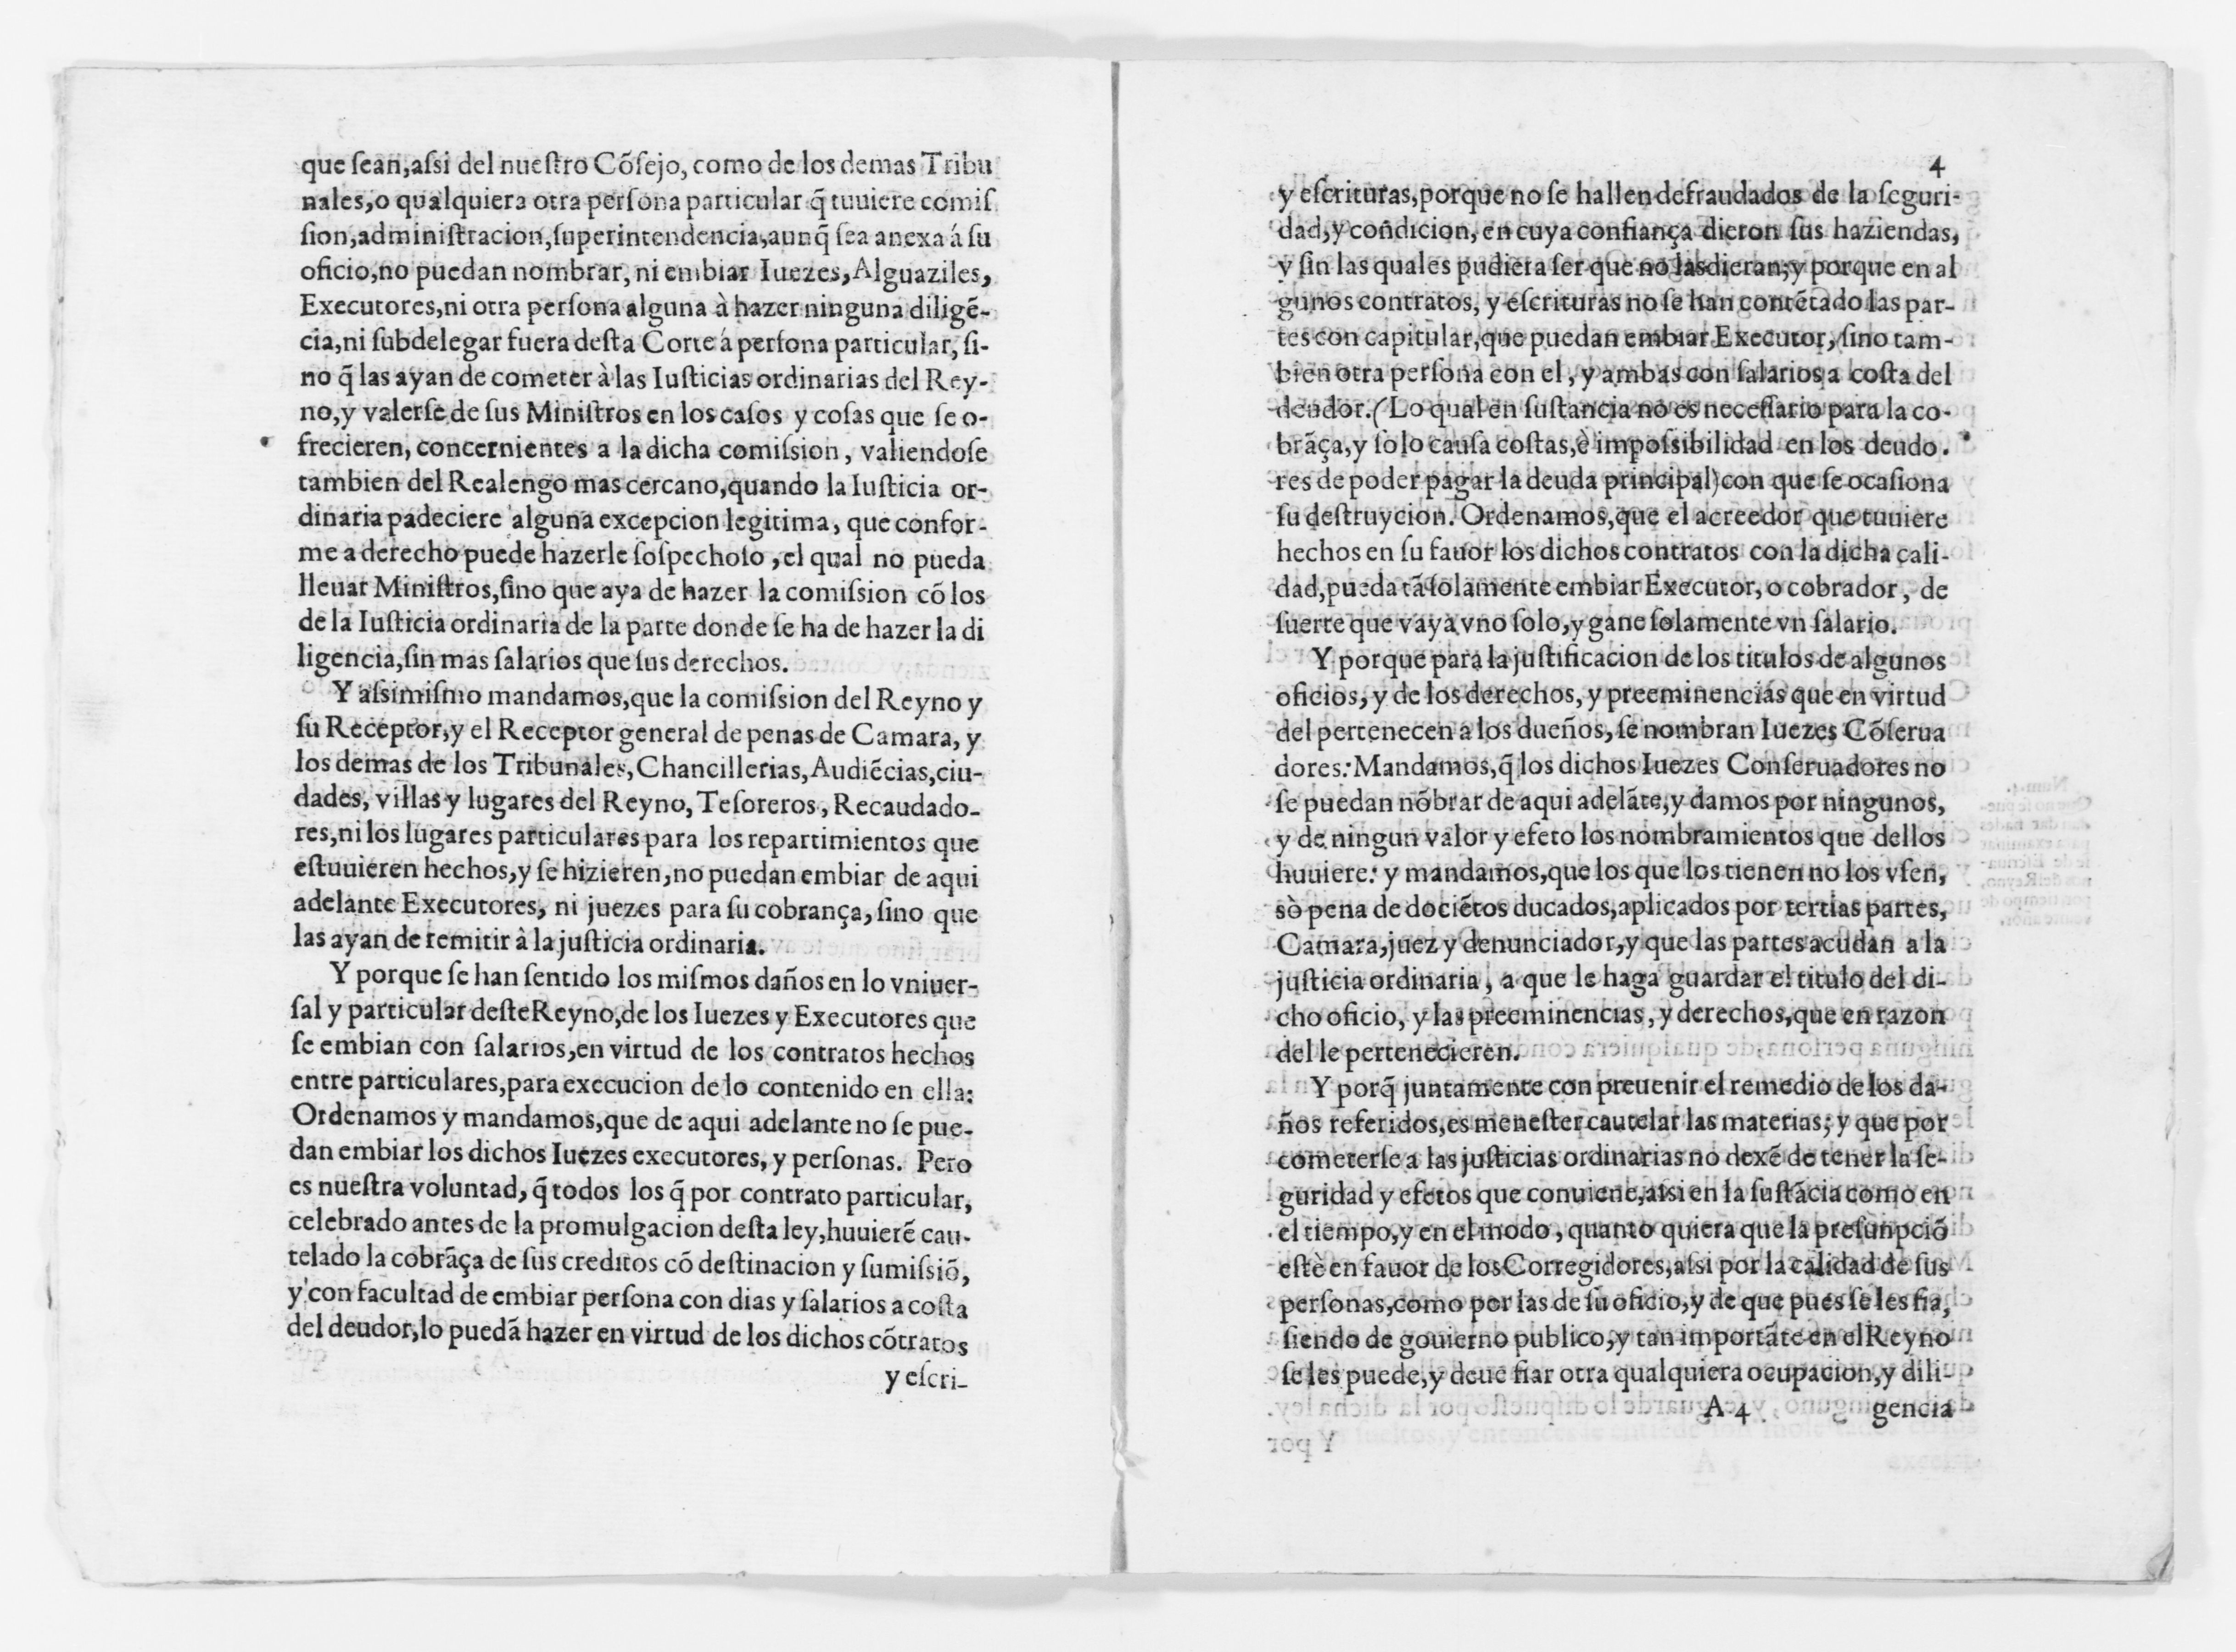 que ſean,aſsi del nueſtro Cõſejo, como de los demas Tribu
nales,o qualquiera otra perſona particular q̃ tuuiere comiſ
ſion,adminiſtracion,ſuperintendencia,aunq̃ ſea anexa á ſu
oficio,no puedan nombrar, ni embiar Iuezes, Alguaziles,
Executores,ni otra perſona alguna à hazer ninguna diligẽ-
cia,ni ſubdelegar fuera deſta Corte á perſona particular, ſi-
no q̃ las ayan de cometer à las Iuſticias ordinarias del Rey-
no,y valerſe de ſus Miniſtros en los caſos y coſas que ſe o-
frecieren, concernientes a la dicha comiſsion, valiendoſe
tambien del Realengo mas cercano,quando la Iuſticia or-
dinaria padeciere alguna excepcion legitima, que confor-
me a derecho puede hazerle ſoſpechoſo, el qual no pueda
lleuar Miniſtros,ſino que aya de hazer la comiſsion cõ los
de la Iuſticia ordinaria de la parte donde ſe ha de hazer la di
ligencia,ſin mas ſalarios que ſus derechos.
Y aſsimiſmo mandamos,que la comiſsion del Reyno y
ſu Receptor,y el Receptor general de penas de Camara, y
los demas de los Tribunales, Chancillerias, Audiẽcias,ciu-
dades, villas y lugares del Reyno, Teſoreros, Recaudado-
res,ni los lugares particulares para los repartimientos que
eſtuuieren hechos,y ſe hizieren,no puedan embiar de aqui
adelante Executores, ni juezes para ſu cobrança, ſino que
las ayan de remitir à la juſticia ordinaria.
Y porque ſe han ſentido los miſmos daños en lo vniuer-
ſal y particular deſte Reyno,de los Iuezes y Executores que
ſe embian con ſalarios,en virtud de los contratos hechos
entre particulares,para execucion de lo contenido en ella:
Ordenamos y mandamos,que de aqui adelante no ſe pue-
dan embiar los dichos Iuezes executores, y perſonas. Pero
es nueſtra voluntad, q̃ todos los q̃ por contrato particular,
celebrado antes de la promulgacion deſta ley,huuierẽ cau-
telado la cobrãça de ſus creditos cõ deſtinacion y ſumiſsiõ,
y con facultad de embiar perſona con dias y ſalarios a coſta
del deudor,lo puedã hazer en virtud de los dichos cõtratos
y eſcri-
4
y eſcrituras,porque no ſe hallen defraudados de la ſeguri-
dad,y condicion, en cuya confiança dieron ſus haziendas,
y ſin las quales pudiera ſer que no las dieran;y porque en al
gunos contratos, y eſcrituras no ſe han contẽtado las par-
tes con capitular,que puedan embiar Executor, ſino tam-
bien otra perſona con el, y ambas con ſalarios a coſta del
deudor.(Lo qual en ſuſtancia no es neceſſario para la co-
brãça,y ſolo cauſa coſtas,è impoſsibilidad en los deudo.
res de poder pagar la deuda principal)con que ſe ocaſiona
ſu deſtruycion. Ordenamos,que el acreedor que tuuiere
hechos en ſu fauor los dichos contratos con la dicha cali-
dad,pueda tã ſolamente embiar Executor, o cobrador, de
ſuerte que vaya vno ſolo,y gane ſolamente vn ſalario.
Y porque para la juſtificacion de los titulos de algunos
oficios, y de los derechos, y preeminencias que en virtud
del pertenecen a los dueños, ſe nombran Iuezes Cõſerua
dores: Mandamos,q̃ los dichos Iuezes Conſeruadores no
ſe puedan nõbrar de aqui adelãte,y damos por ningunos,
y de ningun valor y efeto los nombramientos que dellos
huuiere: y mandamos,que los que los tienen no los vſen,
sò pena de dociẽtos ducados,aplicados por tertias partes,
Camara,juez y denunciador,y que las partes acudan a la
juſticia ordinaria, a que le haga guardar el titulo del di-
cho oficio, y las preeminencias, y derechos,que en razon
del le pertenecieren.
Y porq̃ juntamente con preuenir el remedio de los da-
ños referidos,es meneſter cautelar las materias; y que por
cometerſe a las juſticias ordinarias no dexẽ de tener la ſe-
guridad y efetos que conuiene,aſsi en la ſuſtãcia como en
el tiempo,y en el modo, quanto quiera que la preſunpciõ
eſtè en fauor de los Corregidores,aſsi por la calidad de ſus
perſonas,como por las de ſu oficio,y de que pues ſe les fia,
ſiendo de gouierno publico,y tan importãte en el Reyno
ſe les puede,y deue fiar otra qualquiera ocupacion,y dili-
A 4 gencia